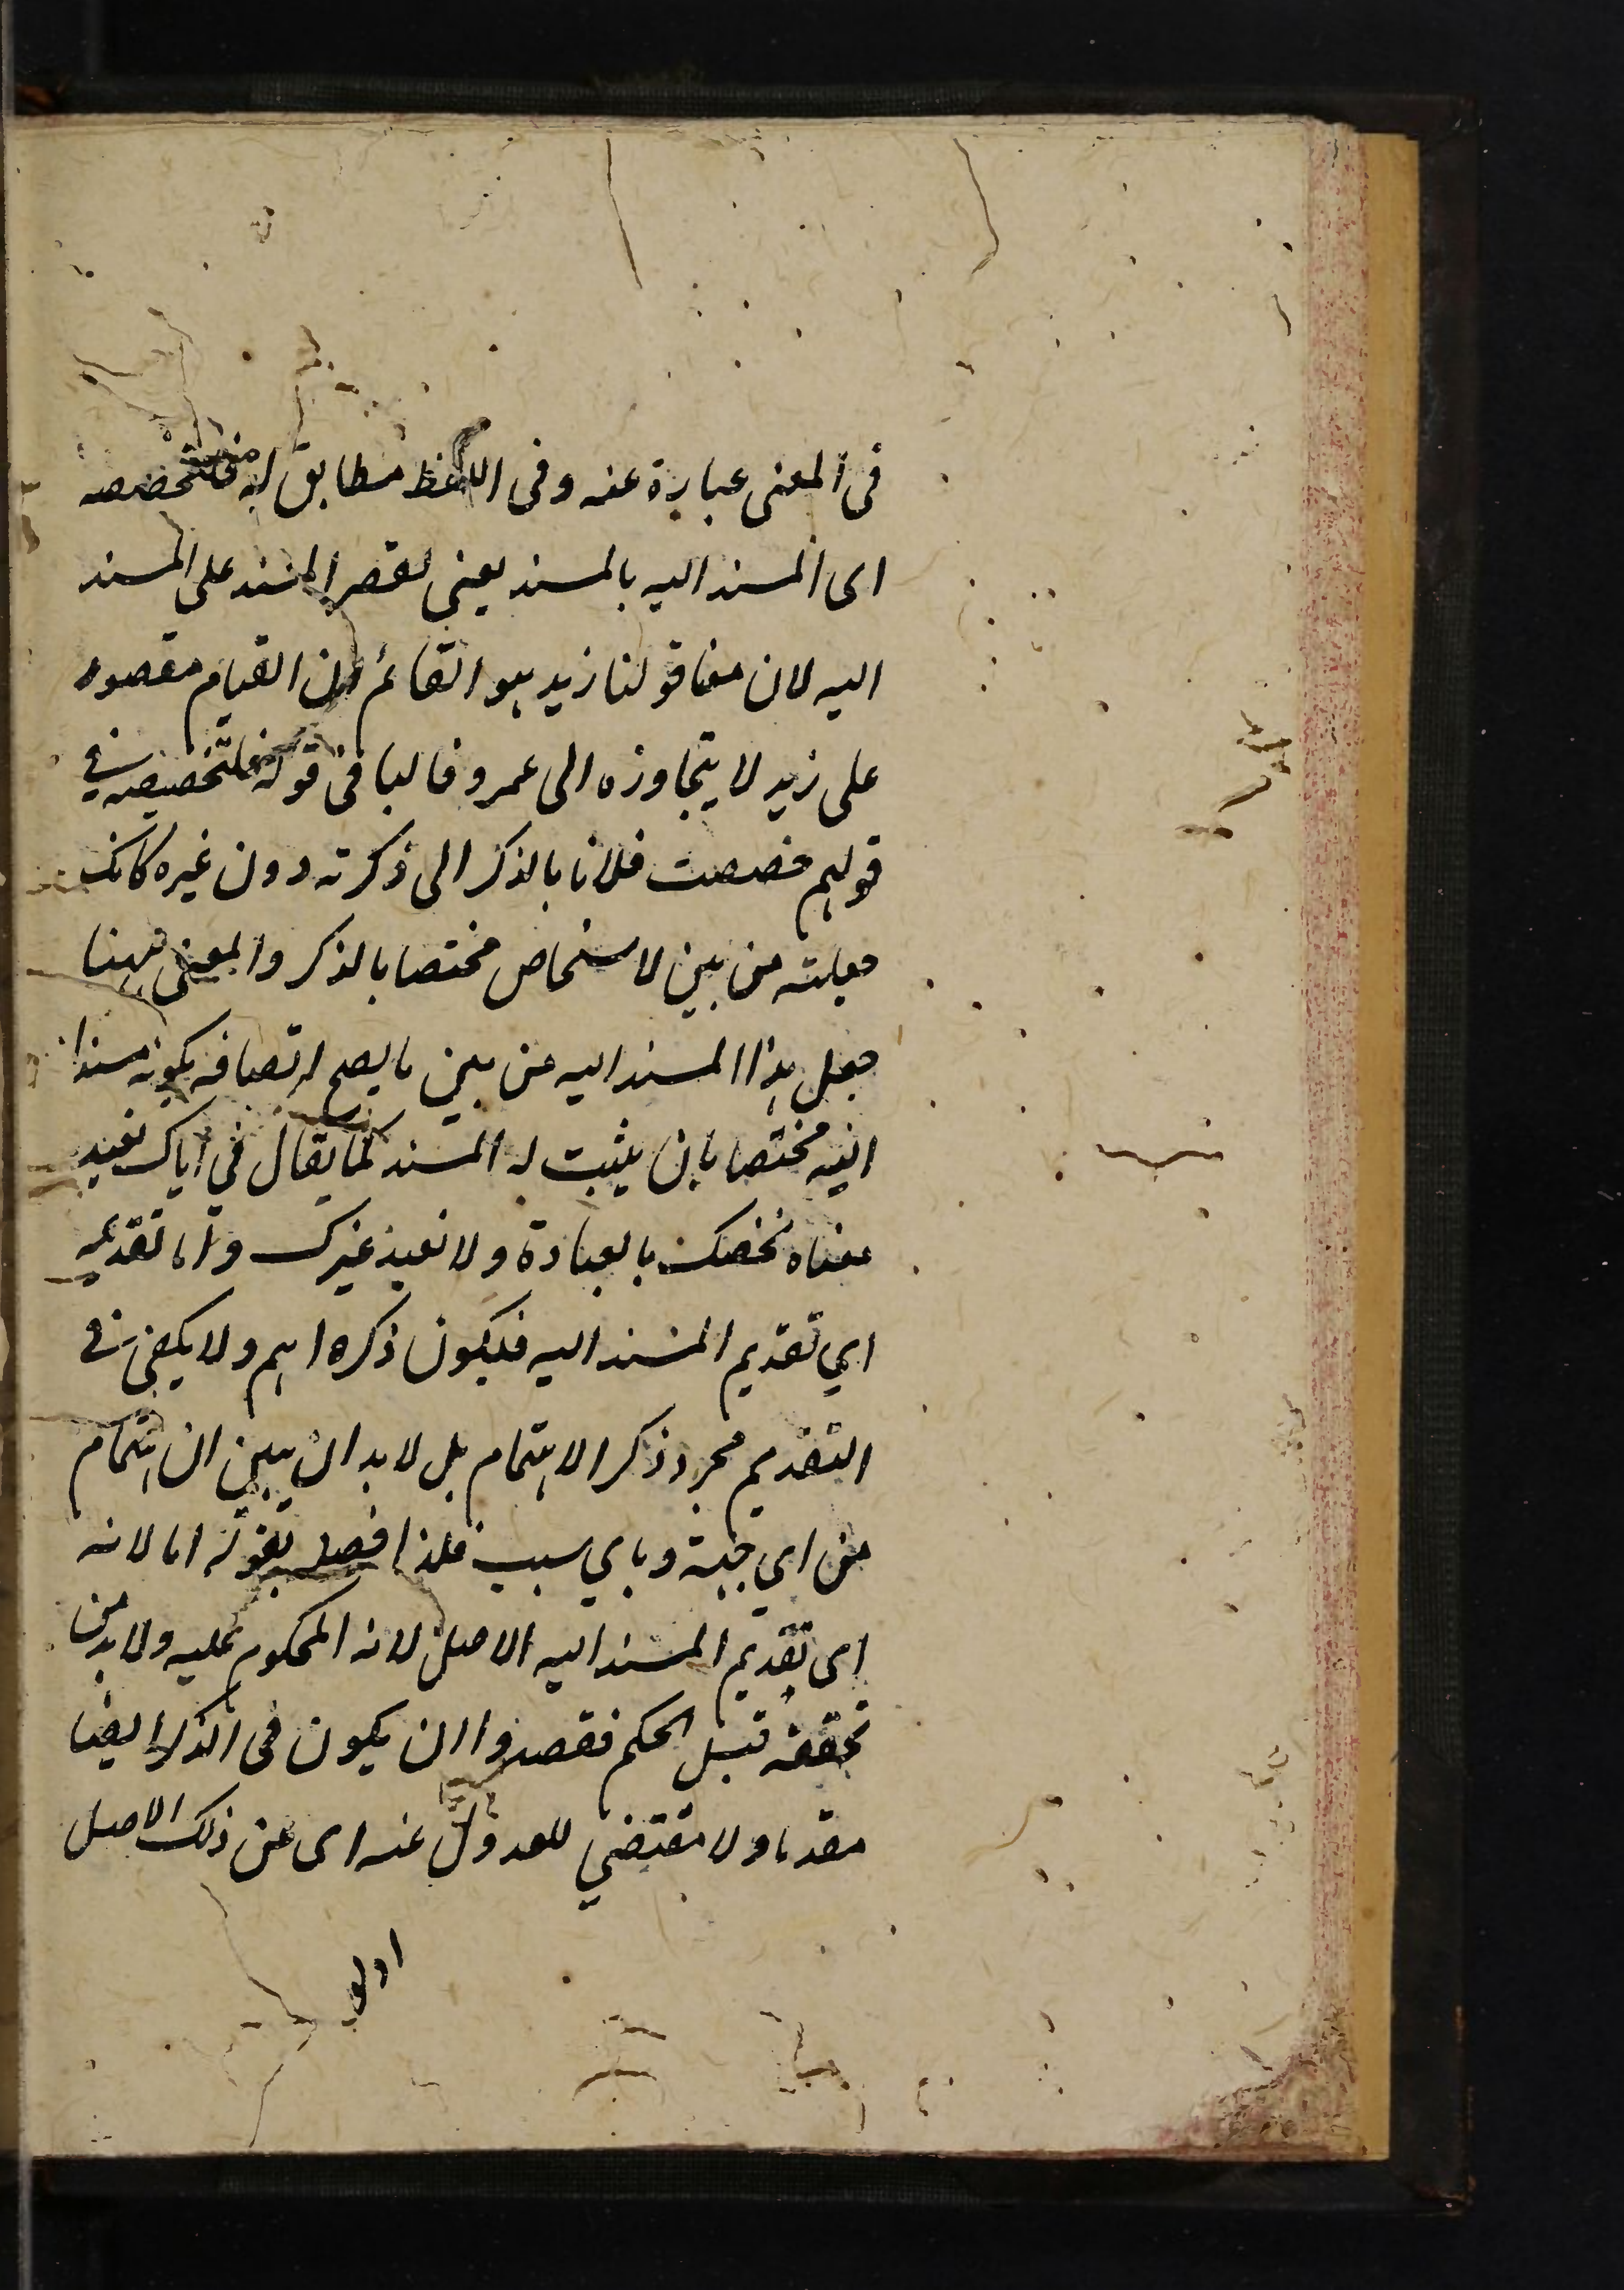 فى المعنى عبارة عنه وفى اللفظ مطابق له فلتخصصه
اى المسند اليه بالمسند يعنى لقصر المسند على المسند
اليه لان معنا قولنا زيد هو القائم ان القيام مقصور
على زيد لا يتجاوزه الى عمرو فالبا فى قوله فلتخصيصه فى
قولهم خصصت فلانا بالذكر الى ذكرته دون غيره كانك
جعلته من بين الاشخاص مختصا بالذكر والمعنى ههنا
جعل هذا المسند اليه من بين ما يصح اتصافه بكونه مسندا
اليه مختصا بان يثبت له المسند كما يقال فى اياك نعبد
معناه نخصك بالعبادة ولا نعبد غيرك واما تقديمه
اي تقديم المسند اليه فلكون ذكره اهم ولا يكفى فى
التقديم مجرد ذكر الاهتمام بل لابد ان يبين ان اهتمام
من اي جهة وباي سبب فلذا فصله بقوله اما لانه
اى تقديم المسند اليه الاصل لانه المحكوم عليه ولابد من
تحققه قبل الحكم فقصدوا ان يكون فى الذكر ايضا
مقدما ولا مقتضي للعدول عنه اى عن ذلك الاصل